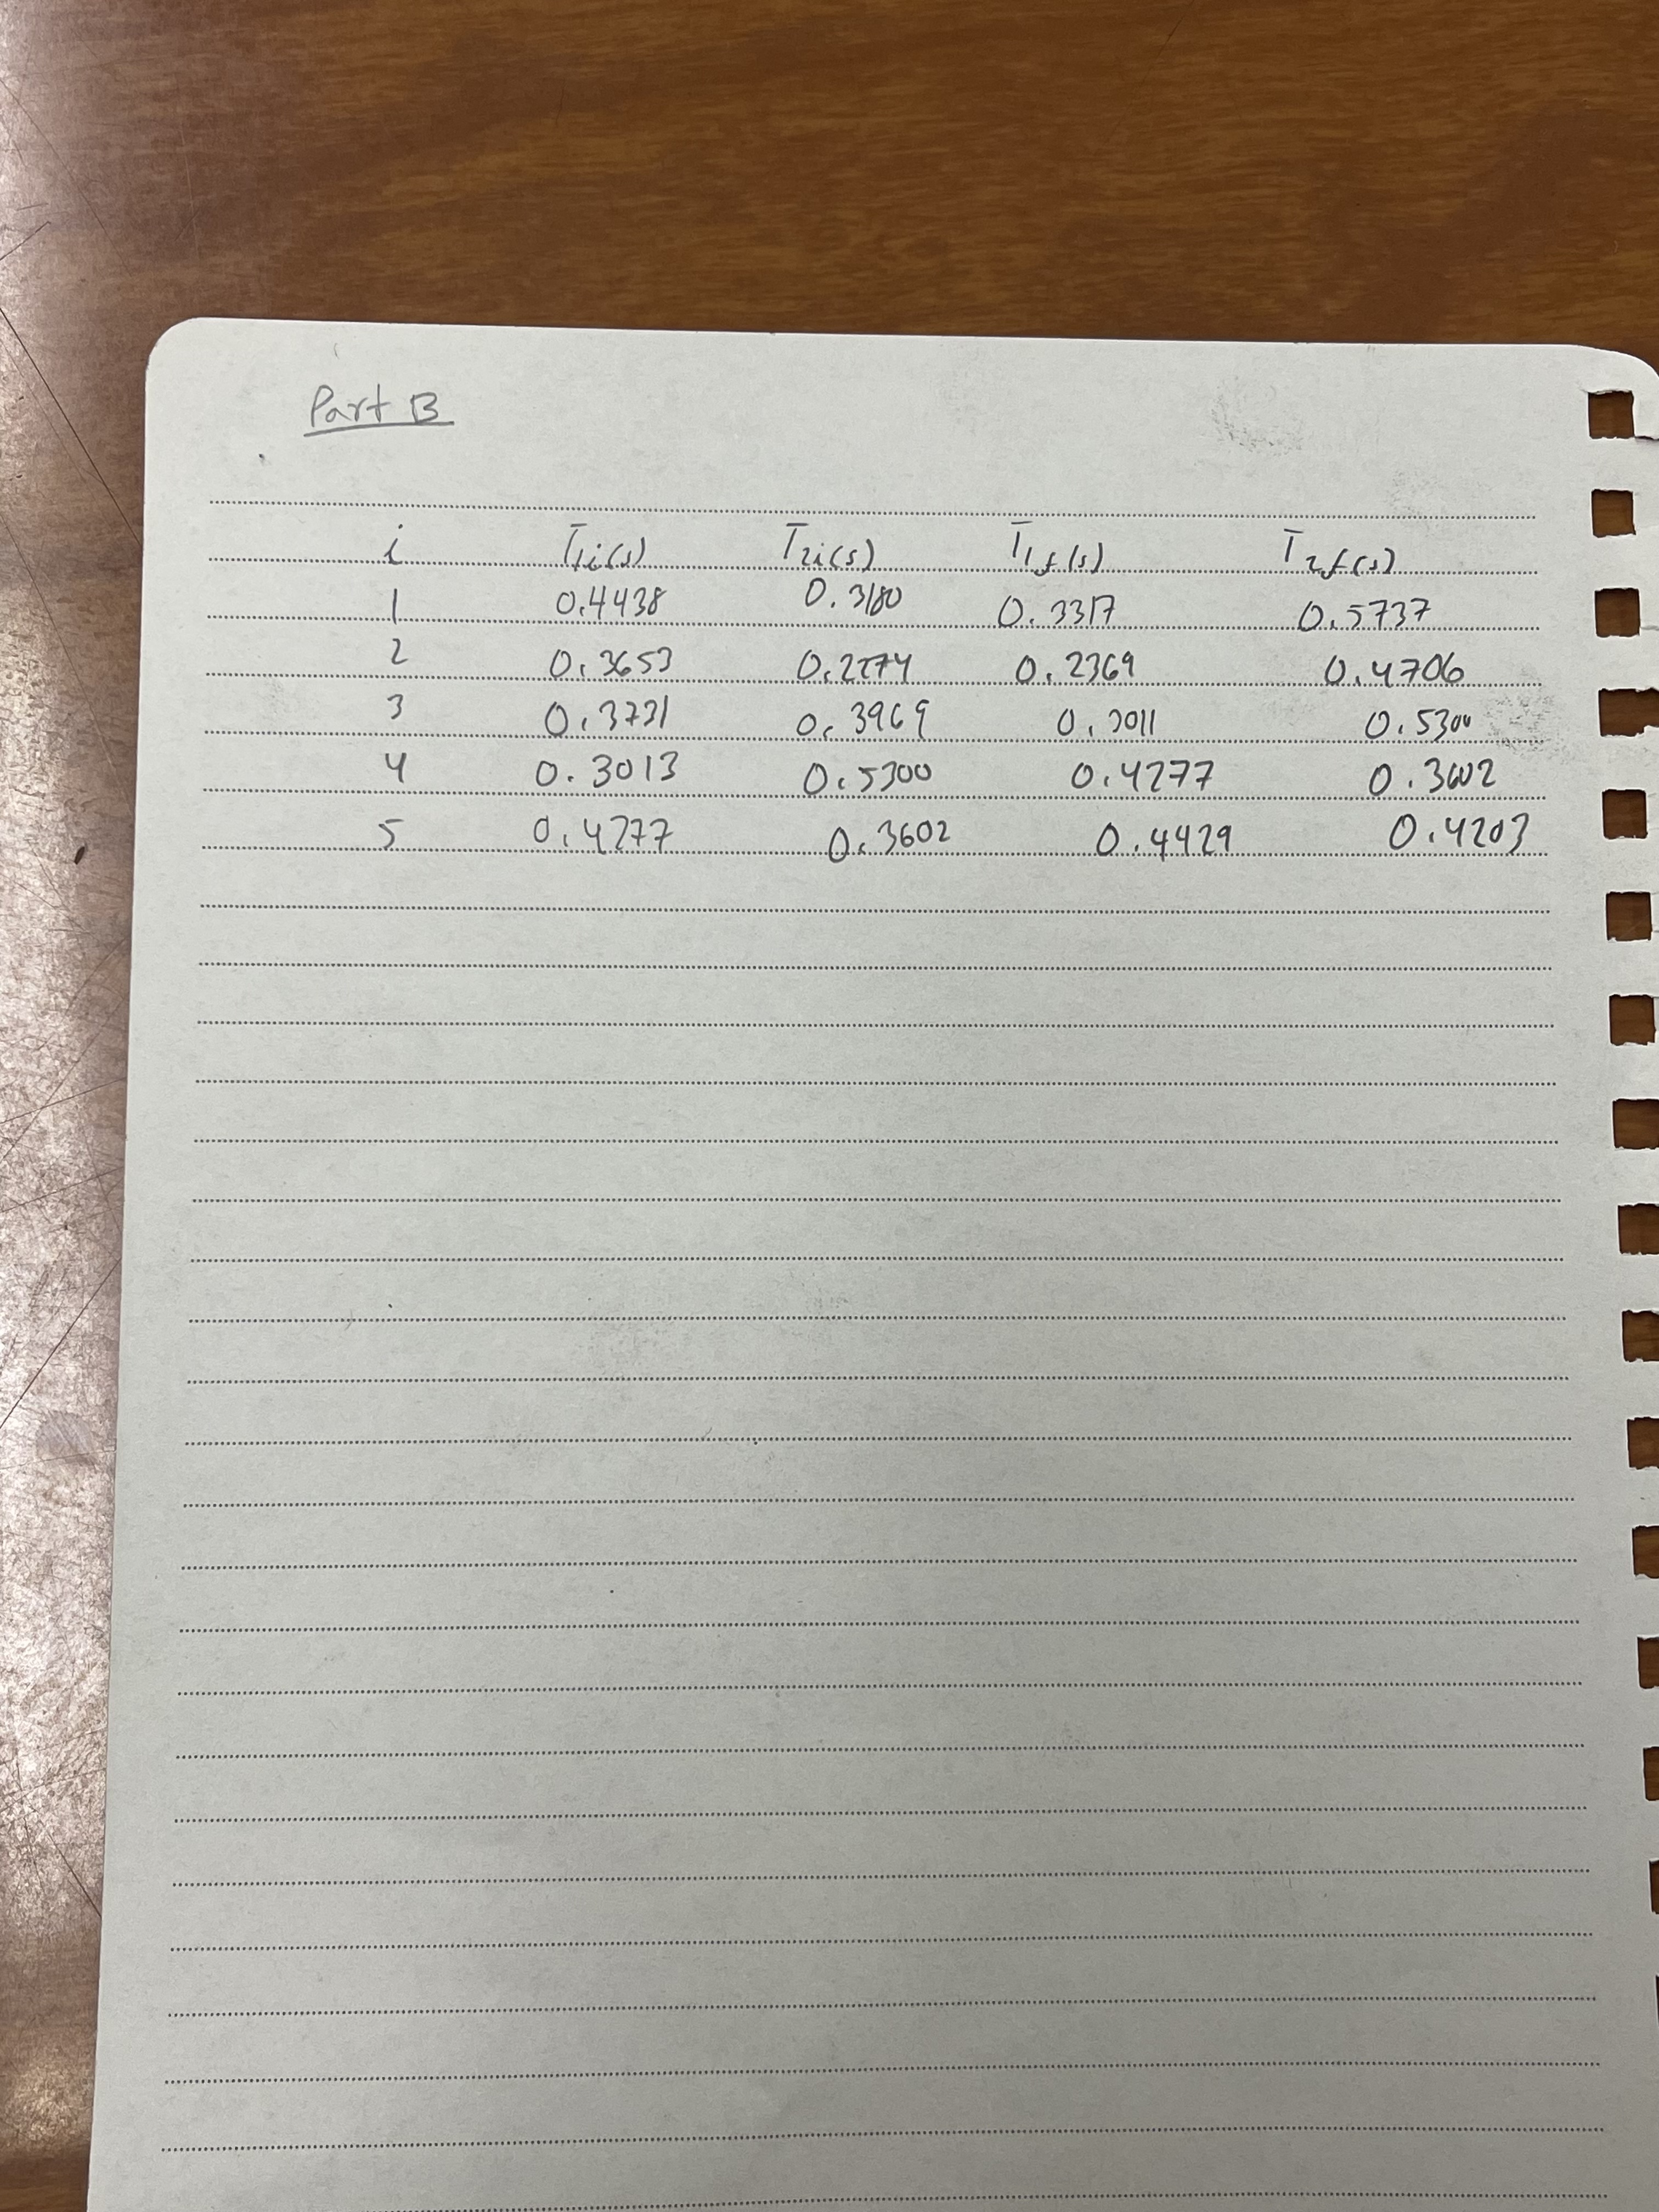 Part B
i T1i(s) T2i(s) T1f(s) T2f(s)
1 0.4438 0.3180 0.3317 0.5737
2 0.3653 0.2274 0.2369 0.4706
3 0.3731 0.3969 0.3011 0.5300
4 0.3013 0.5300 0.4277 0.3602
5 0.4277 0.3602 0.4429 0.4203